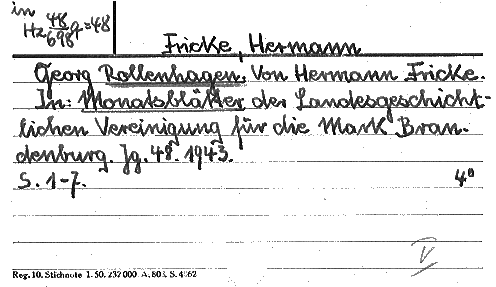 in
Hz 48/698 = 48
Fricke, Hermann
Georg Rollenhagen. Von Hermann Fricke.
In: Monatsblätter der Landesgeschicht-
lichen Vereinigung für die Mark Bran-
denburg. Jg. 48. 1943.
S. 1-7. 4°
V
Reg. 10. Stichnote 1. 50. 232 000 A. 803 S. 4062